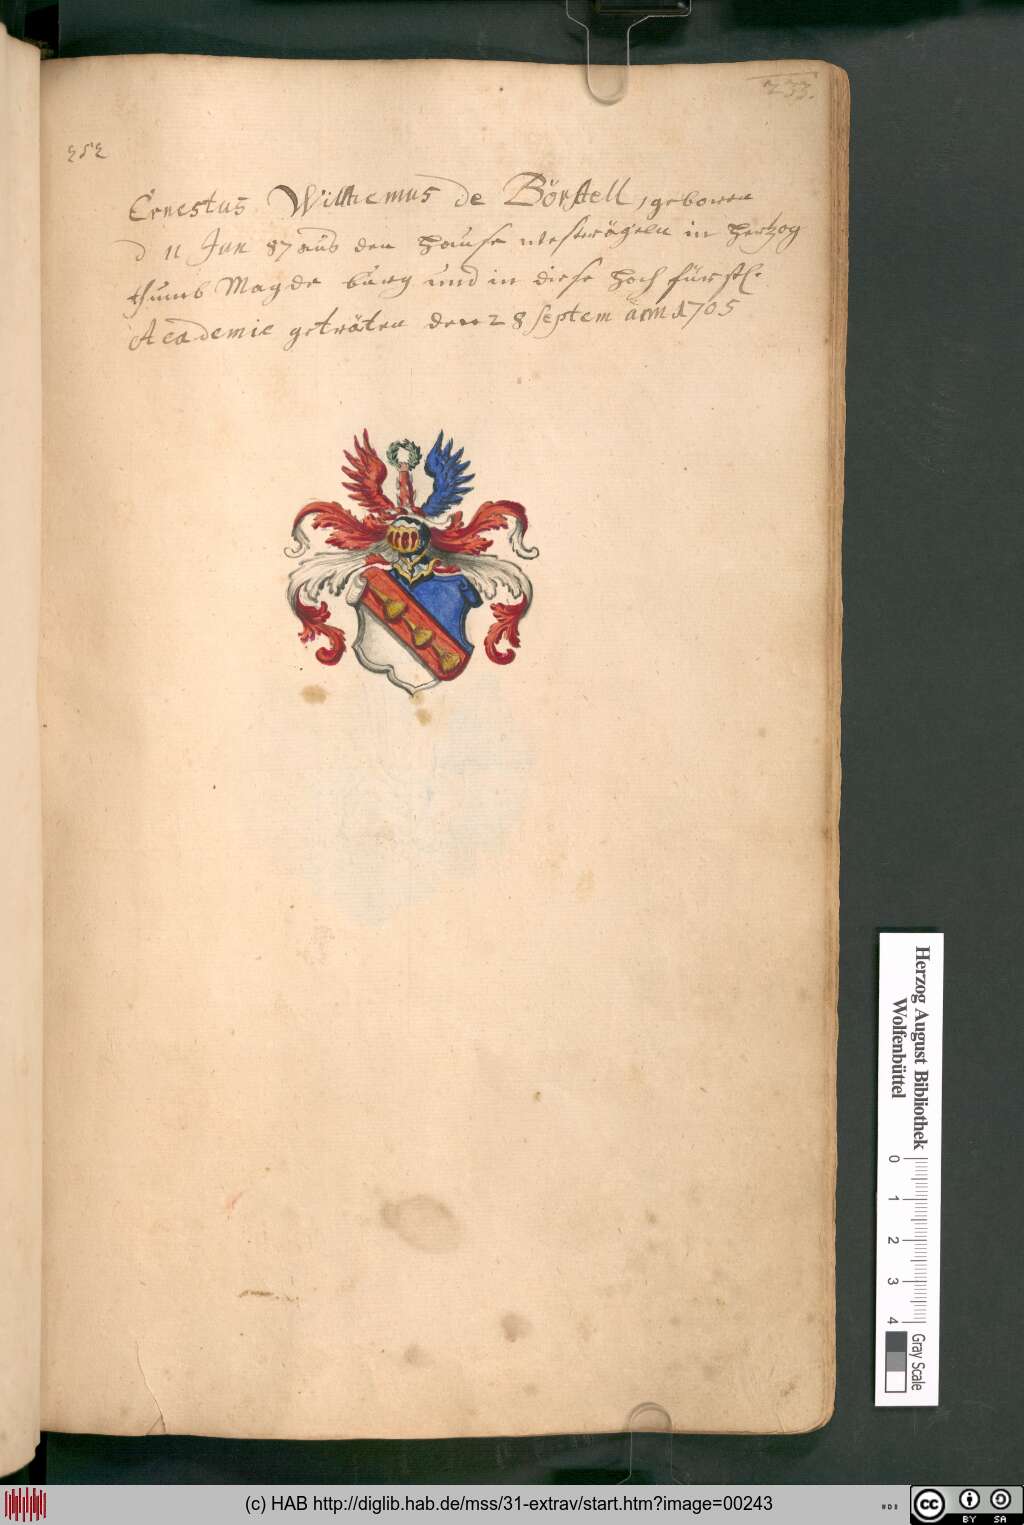 233.
252
Ernestus Wilhemus de Börstell, geboren
d 11 Jun 87 aus den hause westerägeln in hertzog
thumb Magde burg und in diese hoch fürstl.
Academie geträten den 28 septem ann 1705
Herzog August Bibliothek
Wolfenbüttel
0 1 2 3 4
Gray Scale
(c) HAB http://diglib.hab.de/mss/31-extrav/start.htm?image=00243
cc BY SA